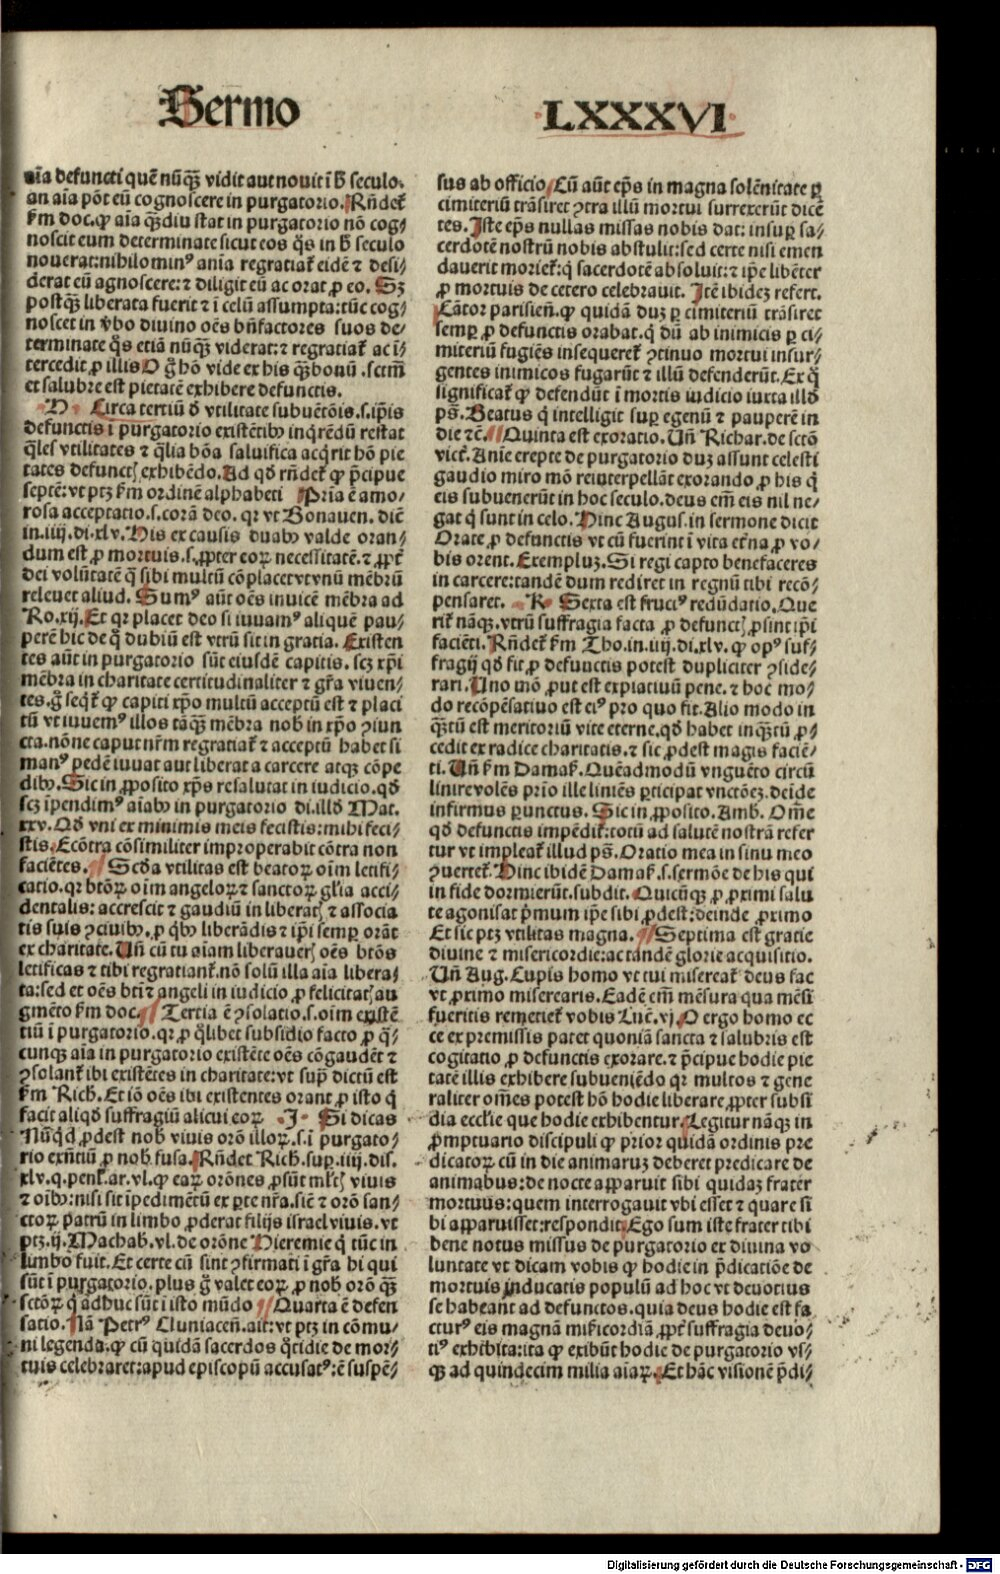 Sermo LXXXVI
aīa defuncti quē nūq̄ꝫ vidit aut nouit ī h̄ seculo.
an aīa pōt eū cognoscere in purgatorio. Rn̄det᷑
ẜm doc. ꝙ aīa q̄ꝫdiu stat in purgatorio nō cog⸗
noscit eum determinate sicut eos q̄s in h̄ seculo
nouerat: nihilominꝰ anīa regratiat᷑ eidē ⁊ desi⸗
derat eū agnoscere: ⁊ diligit eū ac orat ꝓ eo. Sꝫ
postq̄ꝫ liberata fuerit ⁊ ī celū assumpta: tūc cog⸗
noscet in v̄bo diuino oēs bn̄factores suos de⸗
terminate q̄s etiā nūq̄ꝫ viderat: ⁊ regratiat᷑ ac ī⸗
tercedit ꝓ illis O g̊ hō vide ex his q̄ꝫ bonū .sctm̄
et salubre est pietatē exhibere defunctis.
H Circa tertiū d̓ vtilitate subuētōis .s. ip̄is
defunctis ī purgatorio existētibꝰ inq̄rēdū restat
q̄les vtilitates ⁊ q̄lia bōa saluifica acq̄rit hō pie
tates defunctꝭ exhibēdo. Ad qd̓ rn̄det᷑ ꝙ p̄cipue
septē: vt ptꝫ ẜm ordinē alphabeti Pria ē amo⸗
rosa acceptatio .s. corā deo. qꝛ vt Bonauen. diē
in .iiij. di. xlv. His ex causis duabꝰ valde oran⸗
dum est ꝓ mortuis .s. ꝓpter eoꝝ necessitatē. ⁊ ꝓpt᷑
dei volūtatē q̄ sibi multū cōplacet vt vnū mēbrū
releuet aliud. Sumꝰ aūt oēs inuicē mēbra ad
Ro. xij. Et qꝛ placet deo si iuuamꝰ aliquē pau⸗
perē hic de q̊ dubiū est vtrū sit in gratia. Existen
tes aūt in purgatorio sūt eiusdē capitis .scꝫ xp̄i
mēbra in charitate certitudinaliter ⁊ gr̄a viuen⸗
tes. g̊ seqt᷑ ꝙ capiti xp̄o multū acceptū est ⁊ placi
tū vt iuuemꝰ illos tāq̄ꝫ mēbra nob̓ in xp̄o ꝯiun
cta. nōne caput nr̄m regratiat᷑ ⁊ acceptū habet si
manꝰ pedē iuuat aut liberat a carcere atqꝫ cōpe
dibꝰ. Sic in ꝓposito xp̄s resalutat in iudicio. qd̓
scꝫ īpendimꝰ aīabꝰ in purgatorio di. illd̓ Mat.
xxv. Qd̓ vni ex minimis meis fecistis: mihi feci⸗
stis. Ecōtra cōsimiliter improperabit cōtra non
faciētes. Scd̓a vtilitas est beatoꝝ oīm letifi⸗
catio. qꝛ btōꝝ oīm angeloꝝ ⁊ sanctoꝝ gl̄ia acci⸗
dentalis: accrescit ⁊ gaudiū in liberatꝭ ⁊ associa
tis suis ꝯciuibꝰ. ꝓ q̄bꝰ liberādis ⁊ ip̄i semꝑ orāt
ex charitate. Un̄ cū tu aīam liberauerꝭ oēs btōs
letificas ⁊ tibi regratiant᷑. nō solū illa aīa libera⸗
ta: sed et oēs bt̄i ⁊ angeli in iudicio ꝓ felicitatꝭ au
gmēto ẜm doc. Tertia ē ꝯsolatio .s. oīm existē
tiū ī purgatorio. qꝛ ꝓ q̄libet subsidio facto ꝓ q̄⸗
cunqꝫ aīa in purgatorio existēte oēs cōgaudēt ⁊
ꝯsolant᷑ ibi existētes in charitate: vt sup̄ dictū est
ẜm Rich. Et iō oēs ibi existentes orant ꝓ isto q̇
facit aliqd̓ suffragiū alicui eoꝝ J Si dicas
Nūqd̓ ꝓdest nob̓ viuis orō illoꝝ .s. ī purgato⸗
rio exn̄tiū ꝓ nob̓ fusa. Rn̄det Rich. suꝑ .iiij. dis.
xlv. q. penl̓t. ar. vl. ꝙ eaꝝ orōnes ꝓsūt ml̓tꝭ viuis
⁊ oībꝰ: nisi sit īpedimētū ex ꝑte nr̄a. siē ⁊ orō san⸗
ctoꝝ patrū in limbo ꝓderat filijs israel viuis. vt
ptꝫ .ij. Machab. vl. de orōne Hieremie q̇ tūc in
limbo fuit. Et certe cū sint ꝯfirmati ī gr̄a hi qui
sūt ī purgatorio. plus g̊ valet eoꝝ ꝓ nob̓ orō q̄ꝫ
sctōꝝ q̇ adhuc sūt ī isto mūdo Quarta ē defen
satio. Nā Petrꝰ Cluniaceñ. ait: vt ptꝫ in cōmu⸗
ni legenda. ꝙ cū quidā sacerdos q̊tidie de mor⸗
tuis celebraret: apud episcopū accusatꝰ: ē suspē⸗
sus ab officio. Cū aūt ep̄s in magna solēnitate ꝑ
cimiteriū trāsiret ꝯtra illū mortui surrexerūt dicē
tes. Iste ep̄s nullas missas nobis dat: insuꝑ sa⸗
cerdotē nostrū nobis abstulit: sed certe nisi emen
dauerit moriet᷑: q̇ sacerdotē absoluit: ⁊ ip̄e libēter
ꝓ mortuis de cetero celebrauit. Itē ibideꝫ refert.
Cātor parisieñ. ꝙ quidā duꝫ ꝑ cimiteriū trāsiret
semꝑ ꝓ defunctis orabat. q̇ dū ab inimicis ꝑ ci⸗
miteriū fugiēs insequeret᷑ ꝯtinuo mortui insur⸗
gentes inimicos fugarūt ⁊ illū defenderūt. Ex q̊
significat᷑ ꝙ defendūt ī mortis iudicio iuxta illd̓
ps̄. Beatus q̇ intelligit suꝑ egenū ⁊ pauperē in
die ⁊ē. Quinta est exoratio. Un̄ Richar. de sctō
vict᷑. Anīe erepte de purgatorio duꝫ assunt celesti
gaudio miro mō reinterpellāt exorando ꝓ his q̇
eis subuenerūt in hoc seculo. deus em̄ eis nil ne⸗
gat q̇ sunt in celo. Hinc Augus. in sermone dicit
Orate ꝓ defunctis vt cū fuerint ī vita et̓na ꝓ vo⸗
bis orent. Exempluꝫ. Si regi capto benefaceres
in carcere: tandē dum rediret in regnū tibi recō⸗
pensaret. K Sexta est fructꝰ redūdatio. Que
rit᷑ nāqꝫ. vtrū suffragia facta ꝓ defunctꝭ ꝓsint ip̄i
faciēti. Rn̄det᷑ ẜm Tho. in .iiij. di. xlv. ꝙ opꝰ suf⸗
fragij qd̓ fit ꝓ defunctis potest dupliciter ꝯside⸗
rari. Uno mō ꝓut est expiatiuū pene. ⁊ hoc mo⸗
do recōpēsatiuo est eiꝰ pro quo fit. Alio modo in
q̄ꝫtū est meritoriū vite eterne. qd̓ habet inq̄ꝫtū ꝓ⸗
cedit ex radice charitatis. ⁊ sic ꝓdest magis faciē⸗
ti. Un̄ ẜm Damaſ. Quēadmodū vnguēto circū
linire volēs prio ille liniēs ꝑticipat vnctōeꝫ. deīde
infirmus ꝑunctus. Sic in ꝓposito. Amb. Om̄e
qd̓ defunctis impēdit᷑: totū ad salutē nostrā refer
tur vt impleat᷑ illud ps̄. Oratio mea in sinu meo
ꝯuertet᷑. Hinc ibidē Damaſ. s. sermōe de his qui
in fide dormierūt. subdit. Quicūqꝫ ꝓ ꝓximi salu
te agonisat p̄mum ip̄e sibi ꝓdest: deinde ꝓximo
Et sic ptꝫ vtilitas magna. Septima est gratie
diuine ⁊ misericordie: ac tandē glorie acquisitio.
Un̄ Aug. Cupis homo vt tui misereat᷑ deus fac
vt ꝓximo miserearis. Eadē em̄ mēsura qua mēsi
fueritis remetiet᷑ vobis Luē. vj. O ergo homo ec
ce ex premissis patet quoniā sancta ⁊ salubris est
cogitatio ꝓ defunctis exorare. ⁊ p̄cipue hodie pie
tatē illis exhibere subueniēdo qꝛ multos ⁊ gene
raliter om̄es potest hō hodie liberare ꝓpter subsi
dia eccl̄ie que hodie exhibentur. Legitur nāqꝫ in
p̄mptuario discipuli ꝙ prior quidā ordinis pre
dicatoꝝ cū in die animaruꝫ deberet predicare de
animabus: de nocte apparuit sibi quidaꝫ frater
mortuus: quem interrogauit vbi esset ⁊ quare si
bi apparuisset: respondit. Ego sum iste frater tibi
bene notus missus de purgatorio ex diuina vo
luntate vt dicam vobis ꝙ hodie in p̄dicatiōe de
mortuis inducatis populū ad hoc vt deuotius
se habeant ad defunctos. quia deus hodie est fa
cturꝰ eis magnā mīcordiā ꝓpt᷑ suffragia deuo⸗
tiꝰ exhibita: ita ꝙ exibūt hodie de purgatorio vs⸗
qꝫ ad quindecim milia aīaꝝ. Et hāc visionē p̄di⸗
Digitalisierung gefördert durch die Deutsche Forschungsgemeinschaft - DFG